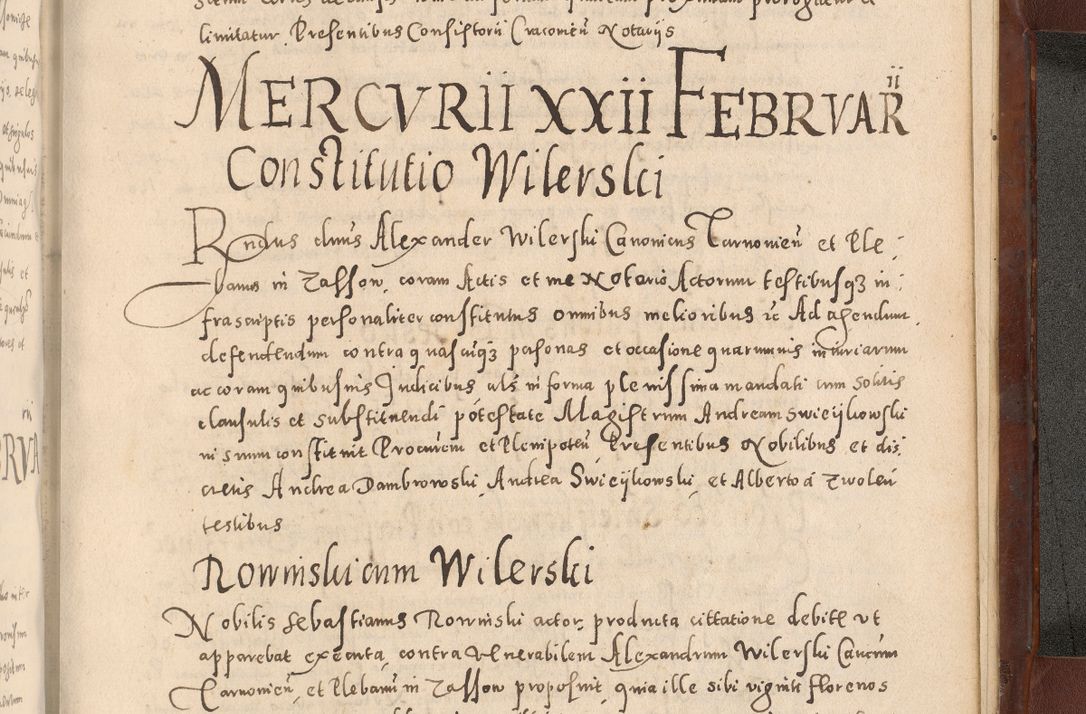 limitatur Presentibus Consistorii Cracovien Notariis
MERCVRII XXII FEBRVARII
Constitutio Wilerski
Rndus dnus Alexander Wilerski Canonicus Tarnovien et Ple-
banus in Zasson, coram Actis et me Notario Actorum testibusqz in-
frascriptis personaliter constitutus omnibus melioribus rc Ad agendum
defendendum contra quascuqz psonas et occasione quarumuis iniuriarum
ac coram quibusuis Judicibus als in forma plenissima mandati cum solitis
clausulis et substituendi potestate Magistrum Andream Swieijkowski
in suum constituit Procurem et Plenipoten, Presentibus Nobilibus et dis-
cretis Andrea Dambrowski, Andrea Swieijkowski, et Alberto a Zwolen
testibus
Rowinski cum Wilerski
Nobilis Sebastianus Rowinski actor, producta cittatione debite ut
apparebat executa, contra Venerabilem Alexandrum Wilerski Cancum
Tarnovien, et Plebanu in Zasson proposuit, quia ille sibi viginti florenos